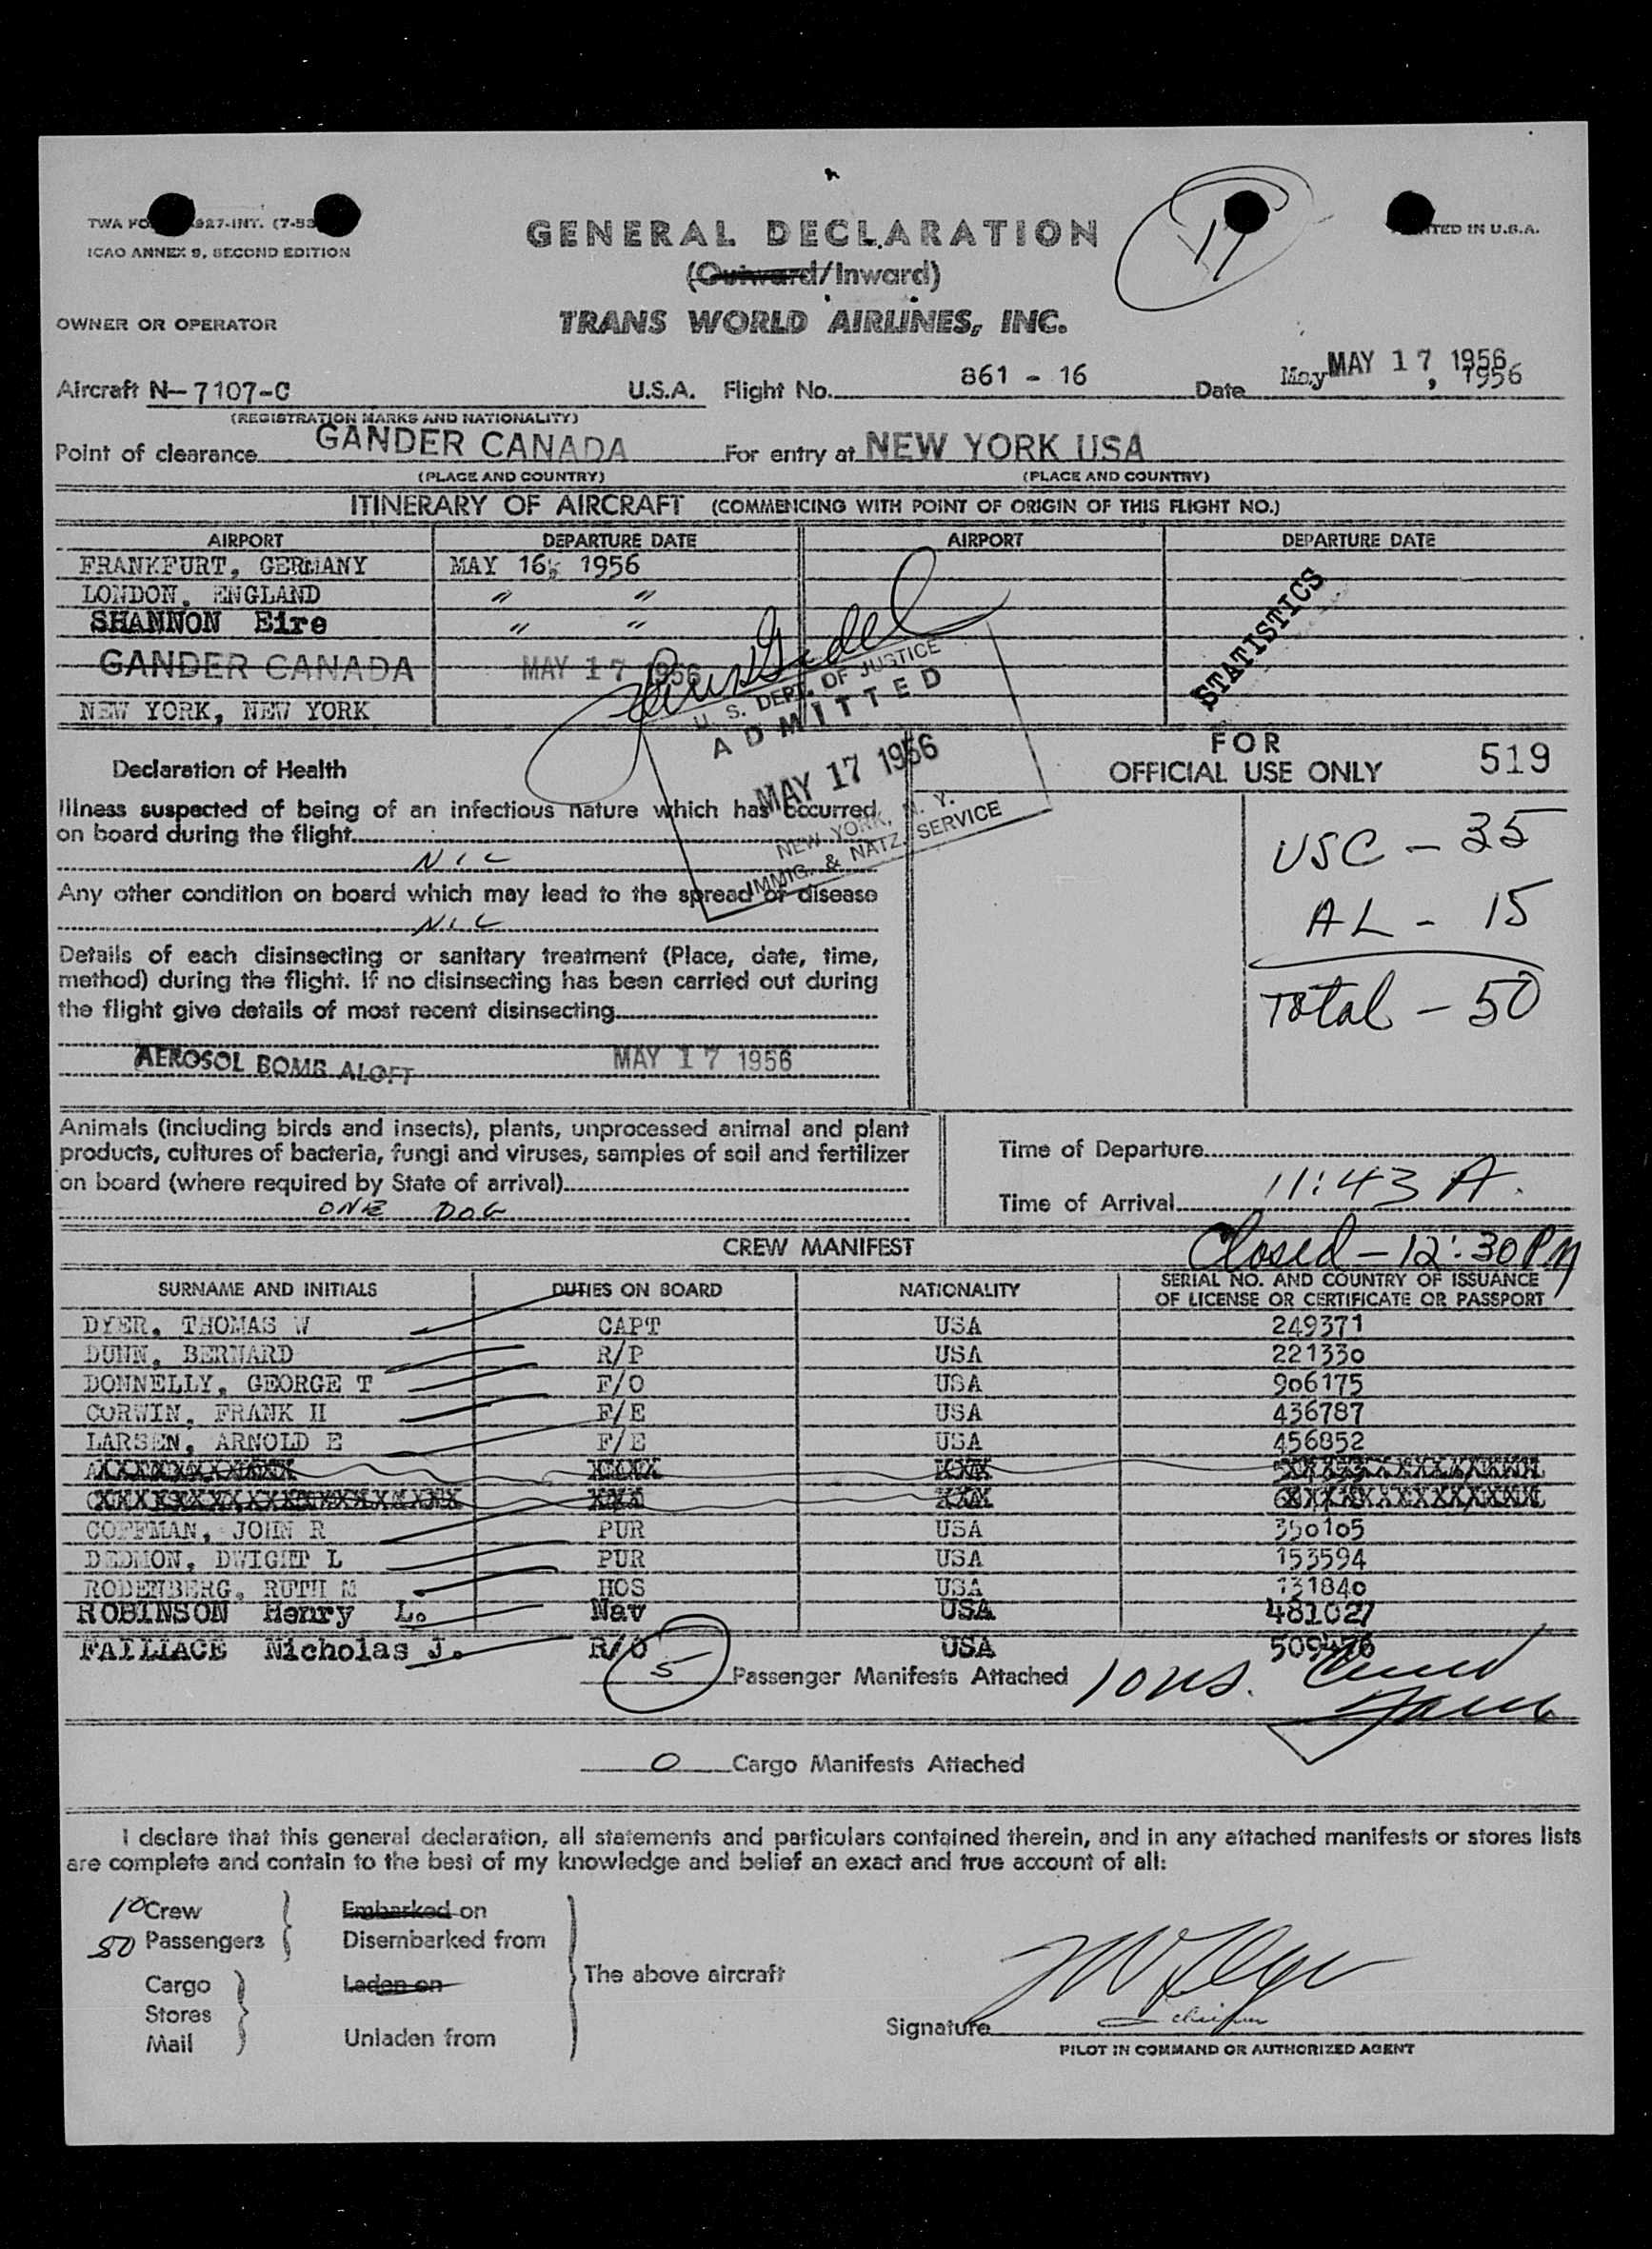 TWA FO 927-INT. (7-53
ICAO ANNEX 9, SECOND EDITION
GENERAL DECLARATION
(Outward/Inward)
17
TED IN U.S.A.
OWNER OR OPERATOR
TRANS WORLD AIRLINES, INC.
Aircraft N-7107-C U.S.A. Flight No. 861 - 16 Date May MAY 17 1956, 1956
(REGISTRATION MARKS AND NATIONALITY)
Point of clearance GANDER CANADA For entry at NEW YORK USA
(PLACE AND COUNTRY) (PLACE AND COUNTRY)
ITINERARY OF AIRCRAFT (COMMENCING WITH POINT OF ORIGIN OF THIS FLIGHT NO.)
AIRPORT DEPARTURE DATE AIRPORT DEPARTURE DATE
FRANKFURT, GERMANY MAY 16, 1956
LONDON, ENGLAND " "
SHANNON Eire " "
GANDER CANADA MAY 17 1956
NEW YORK, NEW YORK
STATISTICS
U. S. DEPT. OF JUSTICE
ADMITTED
MAY 17 1956
NEW YORK, N. Y.
IMMIG. & NATZ. SERVICE
FOR
OFFICIAL USE ONLY 519
Declaration of Health
Illness suspected of being of an infectious nature which has occurred
on board during the flight
NIL
Any other condition on board which may lead to the spread of disease
NIL
Details of each disinsecting or sanitary treatment (Place, date, time,
method) during the flight. If no disinsecting has been carried out during
the flight give details of most recent disinsecting
AEROSOL BOMB ALOFT MAY 17 1956
USC - 35
AL - 15
Total - 50
Animals (including birds and insects), plants, unprocessed animal and plant
products, cultures of bacteria, fungi and viruses, samples of soil and fertilizer
on board (where required by State of arrival)
ONE DOG
Time of Departure
Time of Arrival 11:43 A.
Closed - 12:30 PM
CREW MANIFEST
SURNAME AND INITIALS DUTIES ON BOARD NATIONALITY SERIAL NO. AND COUNTRY OF ISSUANCE
OF LICENSE OR CERTIFICATE OR PASSPORT
DYER, THOMAS W CAPT USA 249371
DUNN, BERNARD R/P USA 221330
DONNELLY, GEORGE T F/O USA 906175
CORWIN, FRANK H F/E USA 436787
LARSEN, ARNOLD E F/E USA 456852
COFFMAN, JOHN R PUR USA 350105
DEDMON, DWIGHT L PUR USA 153594
RODENBERG, RUTH M HOS USA 131840
ROBINSON Henry L. Nav USA 481027
FAILLACE Nicholas J. R/O USA 509476
5 Passenger Manifests Attached 10 us.
0 Cargo Manifests Attached
I declare that this general declaration, all statements and particulars contained therein, and in any attached manifests or stores lists
are complete and contain to the best of my knowledge and belief an exact and true account of all:
10 Crew Embarked on
50 Passengers Disembarked from
The above aircraft
Cargo Laden on
Stores
Mail Unladen from
Signature
PILOT IN COMMAND OR AUTHORIZED AGENT